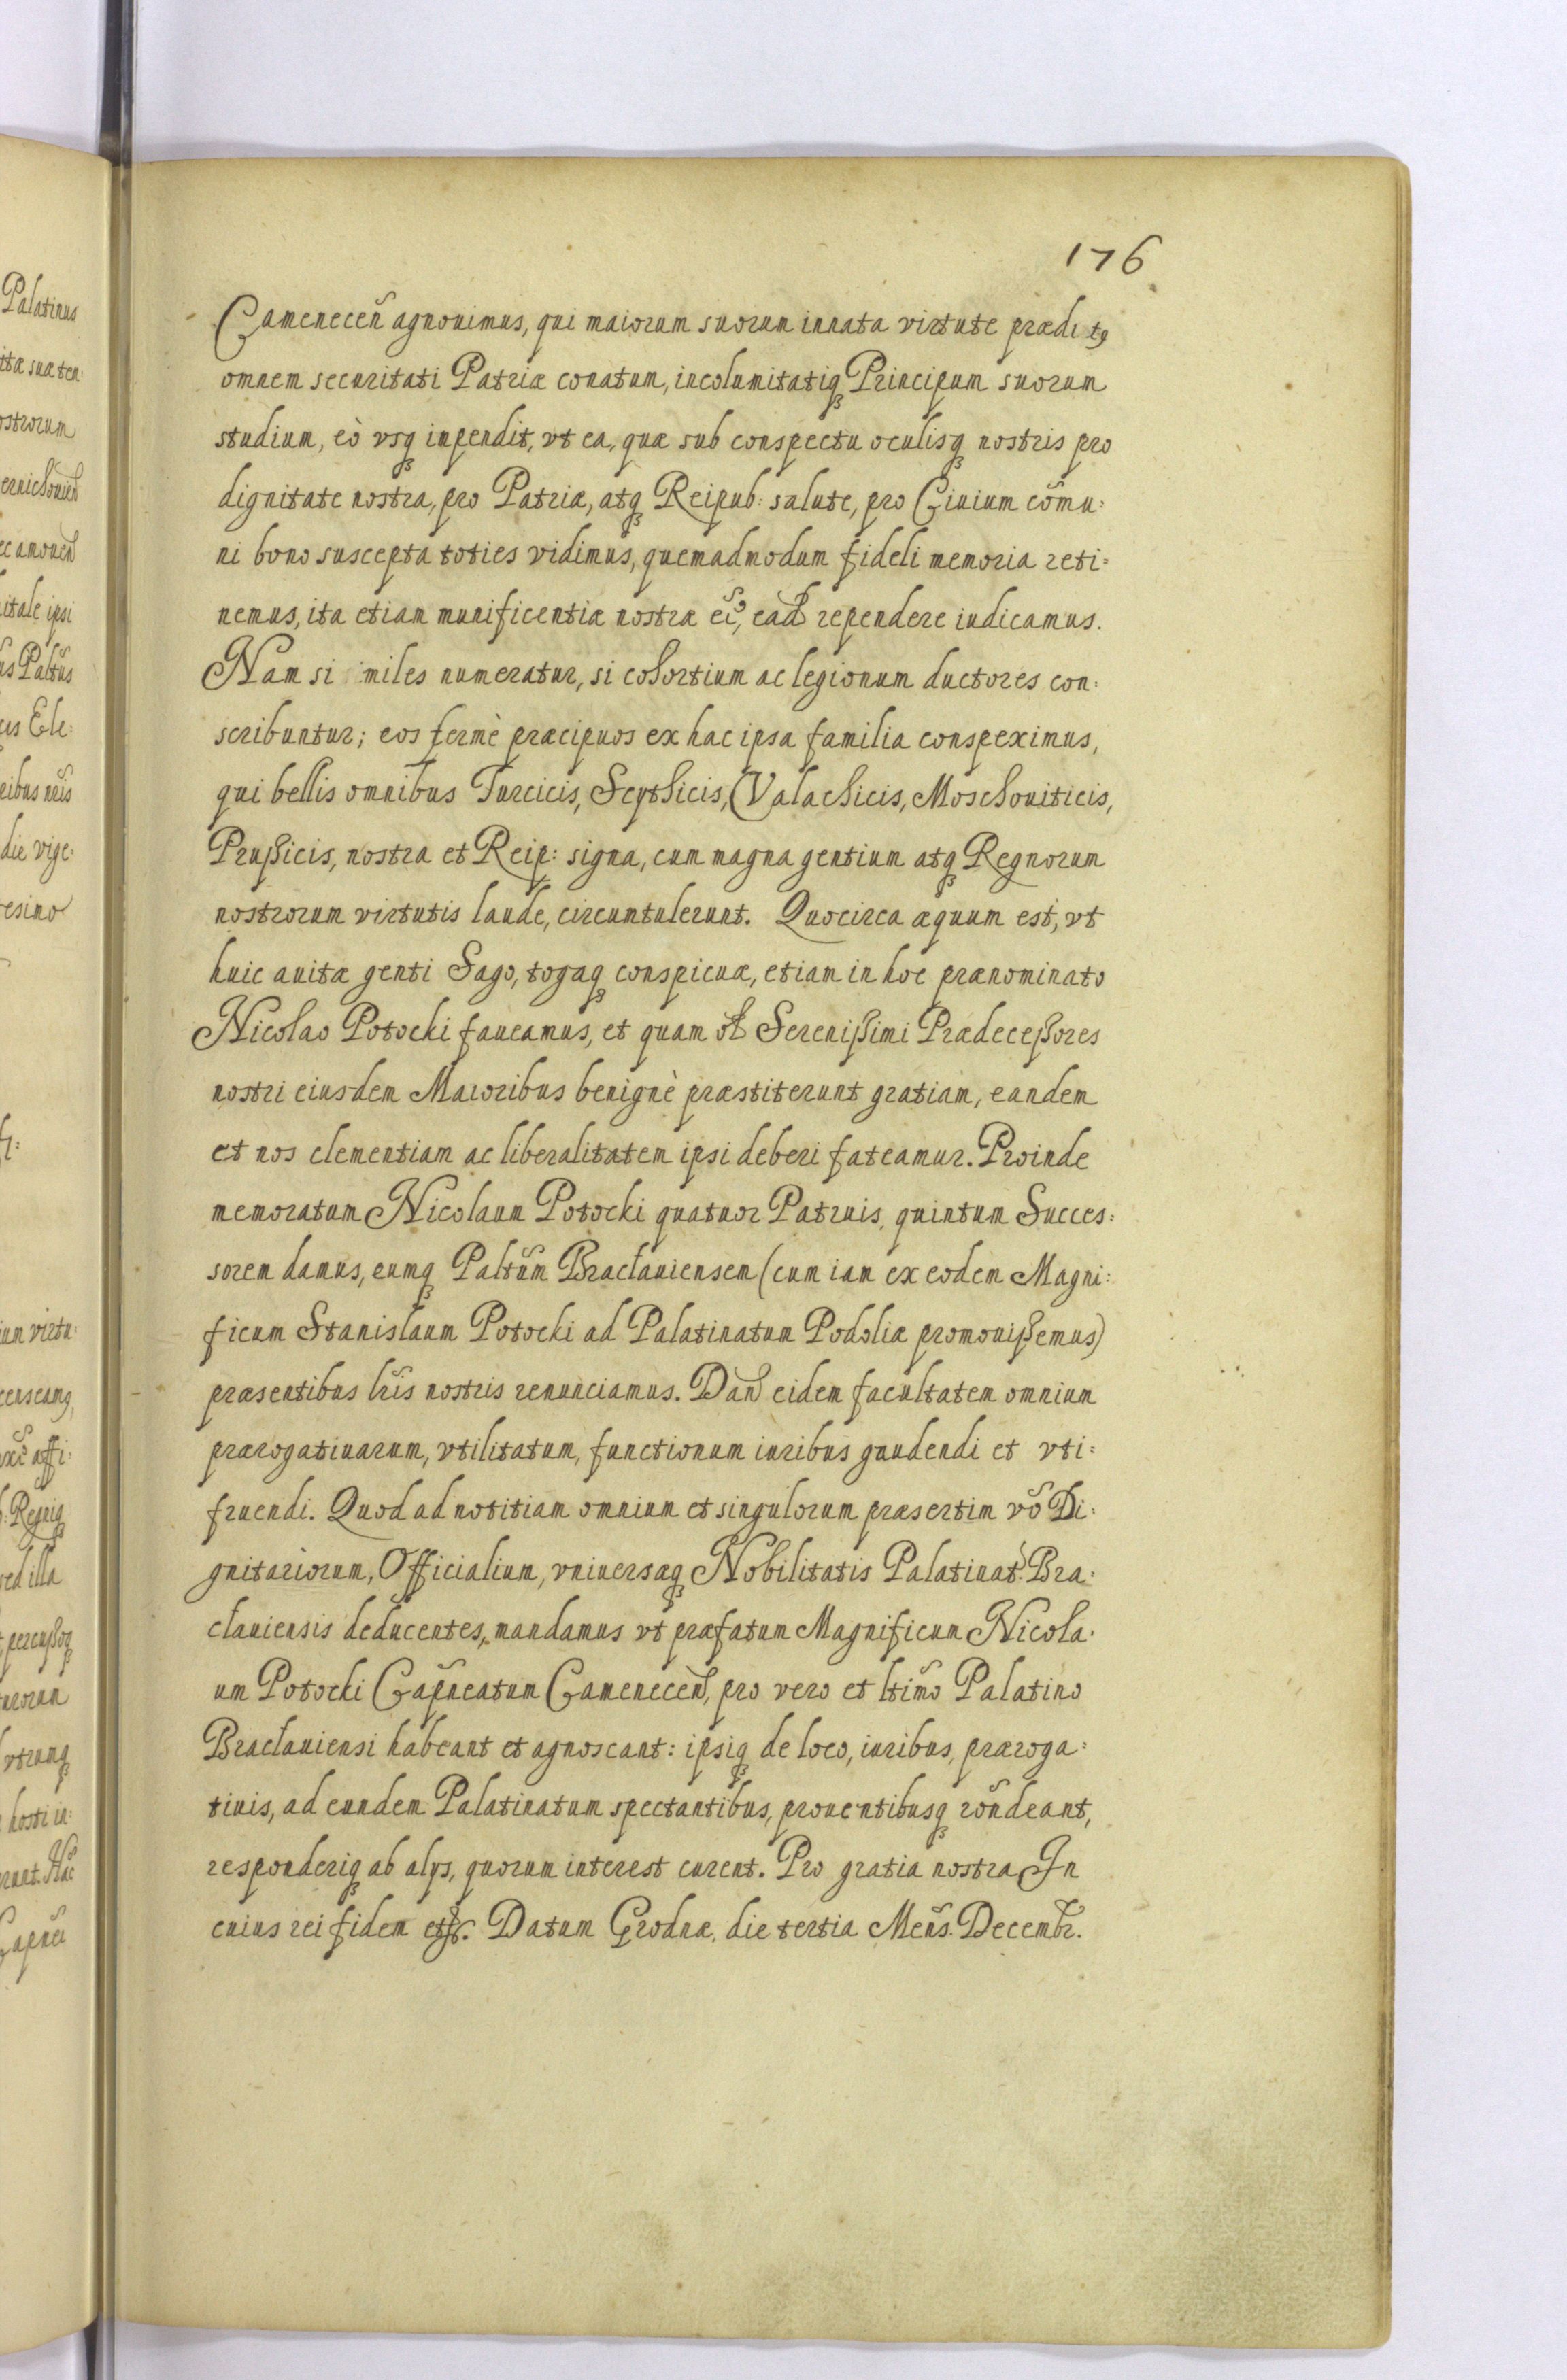 176
Camenecen̄ agnouimus, qui maiorum suorum innata virtute præditꝰ
omnem securitati Patriæ conatum, incolumitatiqꝫ Principum suorum
studium, eò vsqꝫ inpendit, vt ea, quæ sub conspectu oculisqꝫ nostris pro
dignitate nostra, pro Patriæ, atqꝫ Reipub: salute, pro Ciuium com̄u:
ni bono suscepta toties vidimus, quemadmodum fideli memoria reti:
nemus, ita etiam munificentiæ nostræ ead rependere iudicamus.
Nam si miles numeratur, si cohortium ac legionum ductores con:
scribuntur; eos fermè præcipuos ex hac ipsa familia conspeximus,
qui bellis omnibus Turcicis, Scythicis, Valachicis, Moschouiticis,
Prußicis, nostra et Reip: signa, cum magna gentium atqꝫ Regnorum
nostrorum virtutis laude, circumtulerunt. Quocirca æquum est, vt
huic auitæ genti Sago, togaqꝫ conspicuæ, etiam in hoc prænominato
Nicolao Potocki faueamus, et quam ol Serenißimi Prædeceßores
nostri eiusdem Maioribus benignè præstiterunt gratiam, eandem
et nos clementiam ac liberalitatem ipsi deberi fateamur. Proinde
memoratum Nicolaum Potocki quatuor Patruis, quintum Succes:
sorem damus, eumqꝫ Palt̄um Braclauiensem (cum iam ex eodem Magni:
ficum Stanislaum Potocki ad Palatinatum Podoliæ promouißemus)
præsentibus lr̄is nostris renunciamus. Dan̄ eidem facultatem omnium
prærogatiuarum, vtilitatum, functionum iuribus gaudendi et vti:
fruendi. Quod ad notitiam omnium et singulorum præsertim vō Di:
gnitariorum, Officialium, vniuersæqꝫ Nobilitatis Palatinat: Bra:
clauiensis deducentes, mandamus vt præfatum Magnificum Nicola:
um Potocki Cap̄neatum Camenecen̄, pro vero et ltim̄o Palatino
Braclauiensi habeant et agnoscant: ipsiqꝫ de loco, iuribus, præroga:
tiuis, ad eundem Palatinatum spectantibus, prouentibusqꝫ ron̄deant,
responderiqꝫ ab alys, quorum interest curent. Pro gratia nostra In
cuius rei fidem Datum Grodnæ, die tertia Men̄s. Decembr.